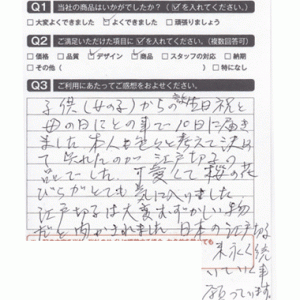 Q1 当社の商品はいかがでしたか？（☑を入れてください。）
□大変よくできました ☑よくできました □頑張りましょう
Q2 ご満足いただけた項目に☑を入れてください。（複数回答可）
□価格 □品質 ☑デザイン ☑商品 □スタッフの対応 □納期
□その他（ ） □特になし
Q3 ご利用にあたってご感想をおよせください。
子供(女の子)からの誕生日祝と
母の日にとの事で10日に届き
ました 本人も色々と考えて決め
て くれたのが 江戸切子の
品でした。可愛くて桜の花
びらがとても気に入りました
江戸切子は大変むずかしい物
だと 聞かされました 日本の江戸切子
末永く続
いていく事
願っています。